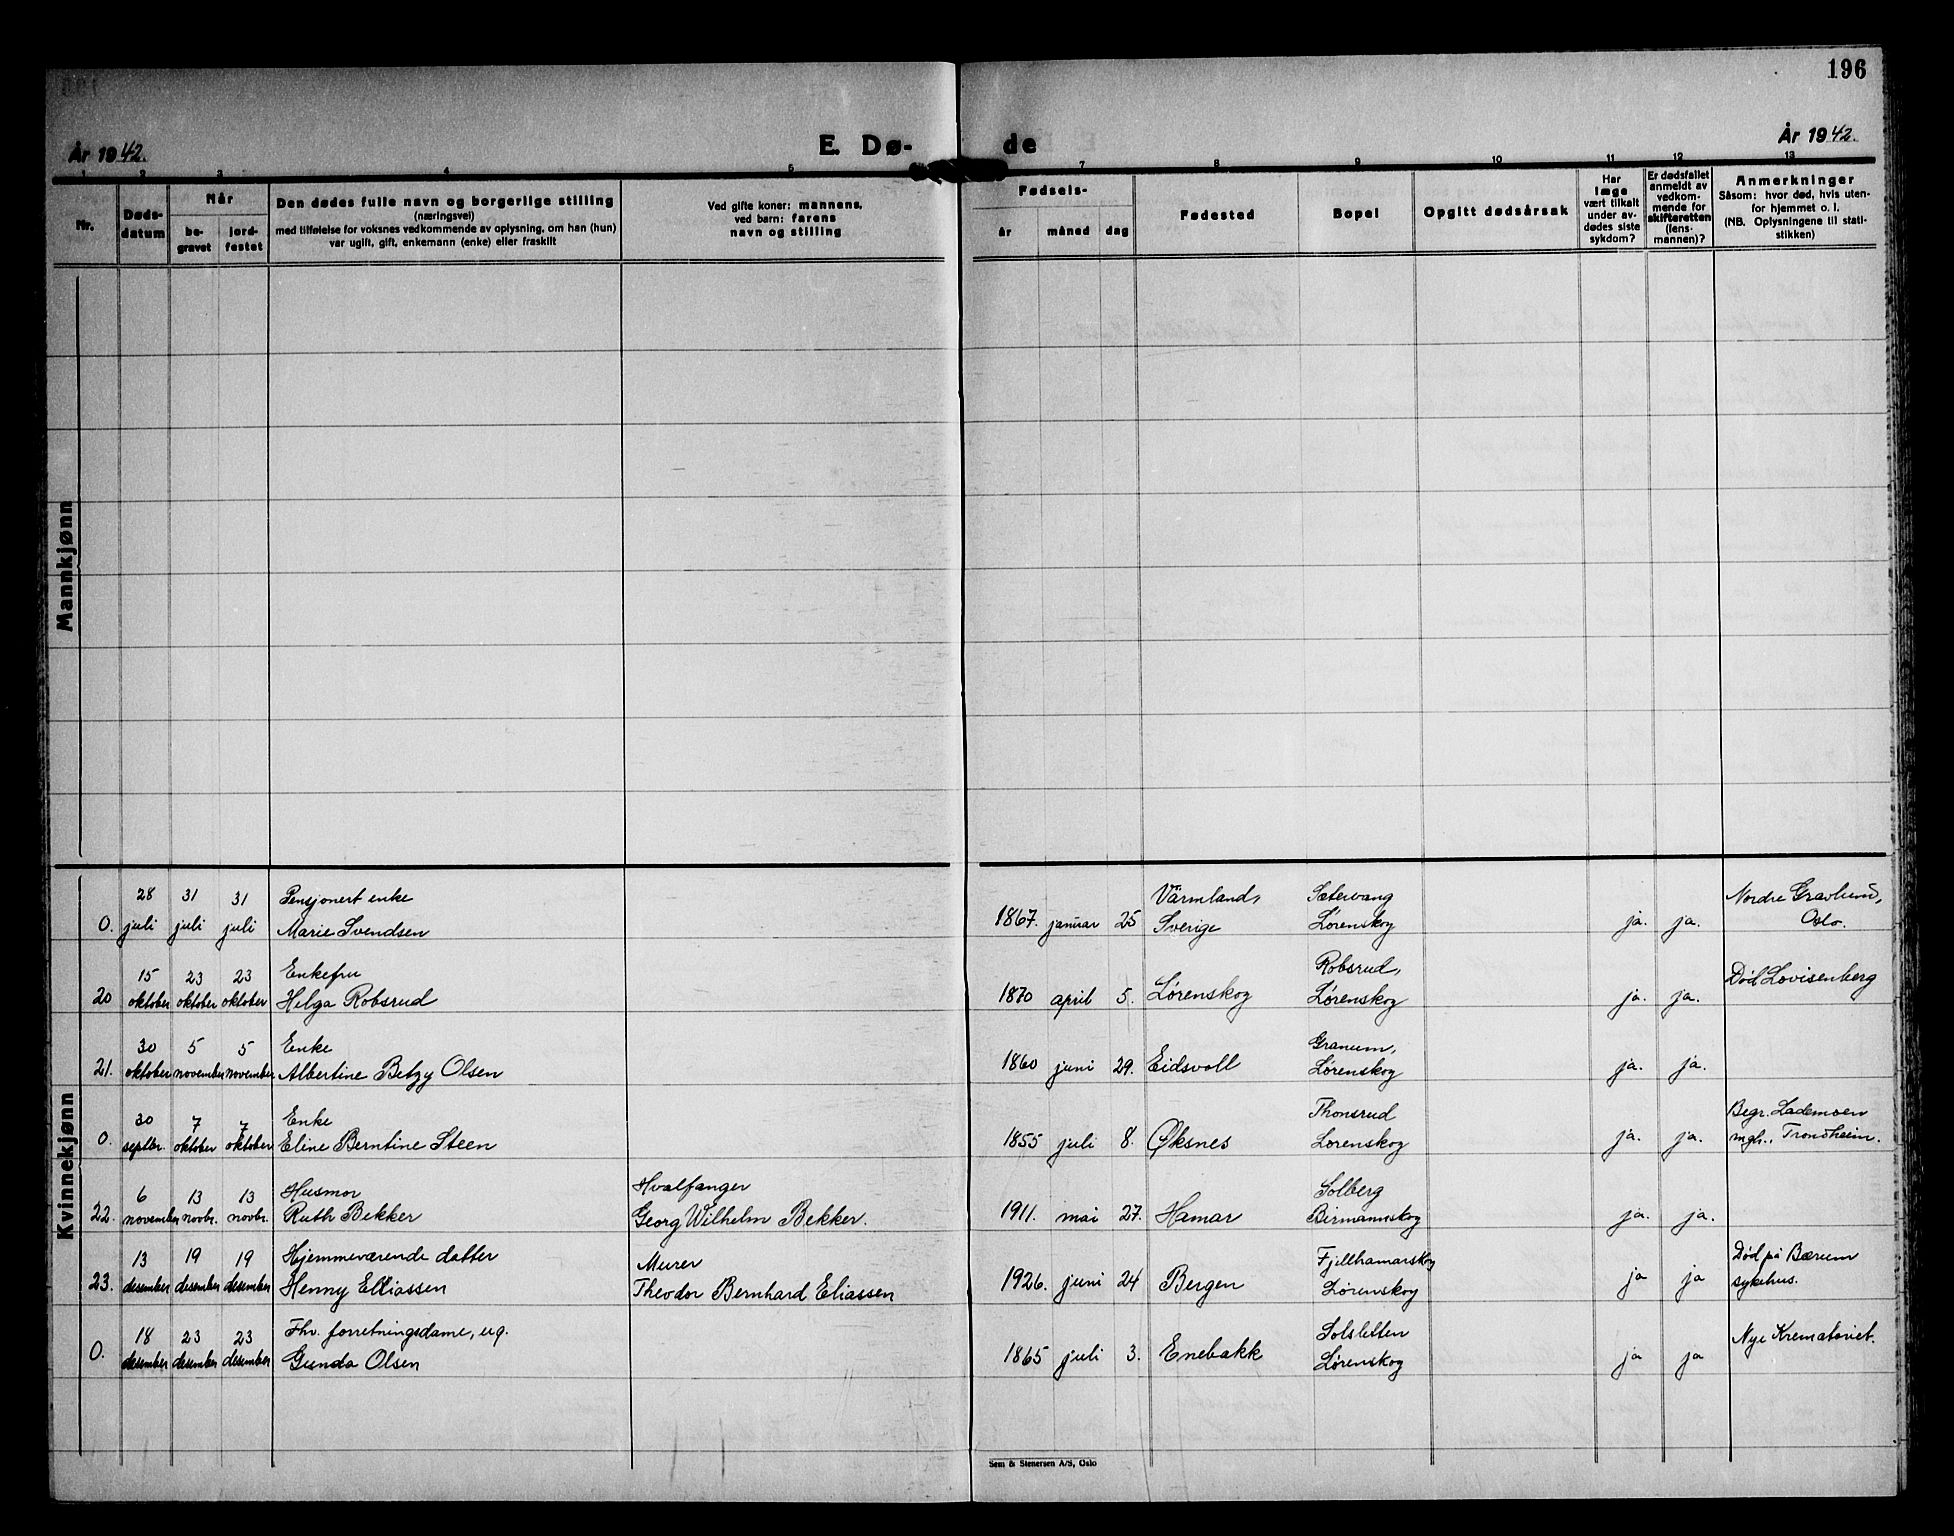 196
År 1942.
E. Dø-
de
År 1942.
1 2 3 4 5 7 8 9 10 11 12 13
Nr.
Døds-
datum
Når
be-
gravet
jord-
festet
Den dødes fulle navn og borgerlige stilling
(næringsvei)
med tilføielse for voksnes vedkommende av oplysning, om han (hun)
var ugift, gift, enkemann (enke) eller fraskilt
Ved gifte koner: mannens,
ved barn: farens
navn og stilling
Fødsels-
år måned dag
Fødested
Bopel
Opgitt dødsårsak
Har
læge
vært tilkalt
under av-
dødes siste
sykdom?
Er dødsfallet
anmeldt av
vedkom-
mende for
skifteretten
(lens-
mannen)?
Anmerkninger
Såsom: hvor død, hvis uten-
for hjemmet o. l.
(NB. Oplysningene til stati-
stikken)
Mannkjønn
Kvinnekjønn
28 31 31 Pensjonert enke Värmland, Sætervang Nordre Gravlund,
0. juli juli juli Marie Svendsen 1867. januar 25 Sverige Lørenskog ja. ja. Oslo.
15 23 23 Enkefru Robsrud, Død Lovisenberg
20 oktober oktober oktober Helga Robsrud 1870 april 5. Lørenskog Lørenskog ja. ja.
30 5 5 Enke Granum,
21. oktober november november Albertine Betzy Olsen 1860 juni 29. Eidsvoll Lørenskog ja. ja.
30 7 7 Enke Thonsrud Begr. Lademoen
0. septbr. oktober oktober Eline Berntine Steen 1855 juli 8. Øksnes Lørenskog ja. ja. mgh., Trondheim.
6 13 13 Husmor Hvalfanger Solberg
22. november novbr. novbr. Ruth Bekker Georg Wilhelm Bekker. 1911. mai 27. Hamar Birmannskog ja. ja.
13 19 19 Hjemmeværende datter Murer Fjellhamarskog Død på Bærum
23. desember desember desember Henny Elliassen Theodor Bernhard Eliassen 1926. juni 24 Bergen Lørenskog ja ja sykehus.
18 23 23 Fhv. forretningsdame, ug. Solsletten Nye Krematoriet.
0. desember desember desember Gunda Olsen 1865 juli 3. Enebakk Lørenskog ja ja
Sem & Stenersen A/S, Oslo